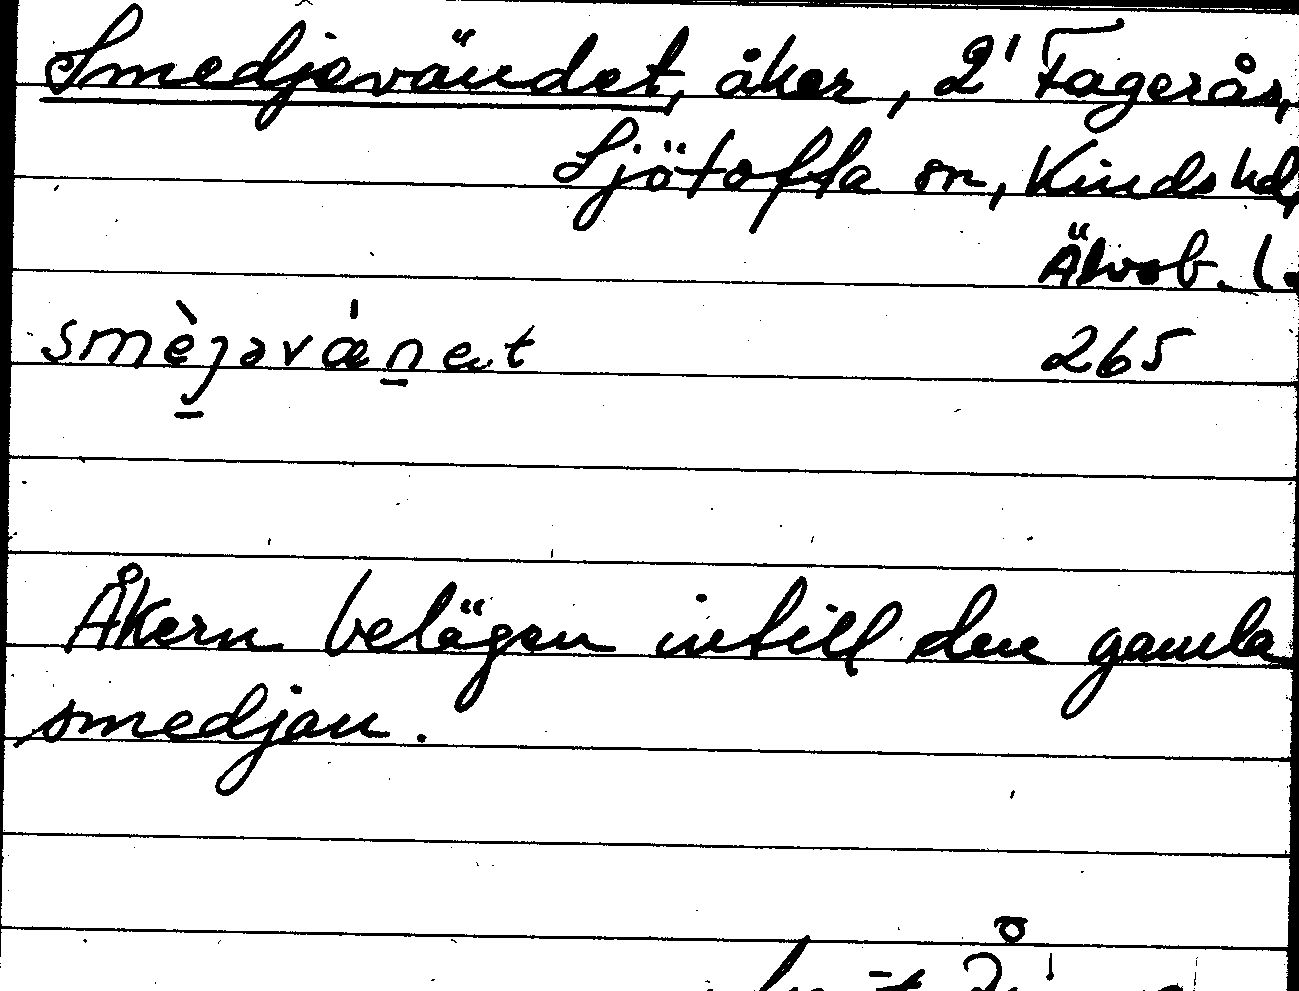 Smedjevändet, åker, 2' Fagerås,
Ljötofta sn, Kinds hd,
Älvsb. l.
smèjəvǽnet 265
Åkern belägen intill den gamla
smedjan.